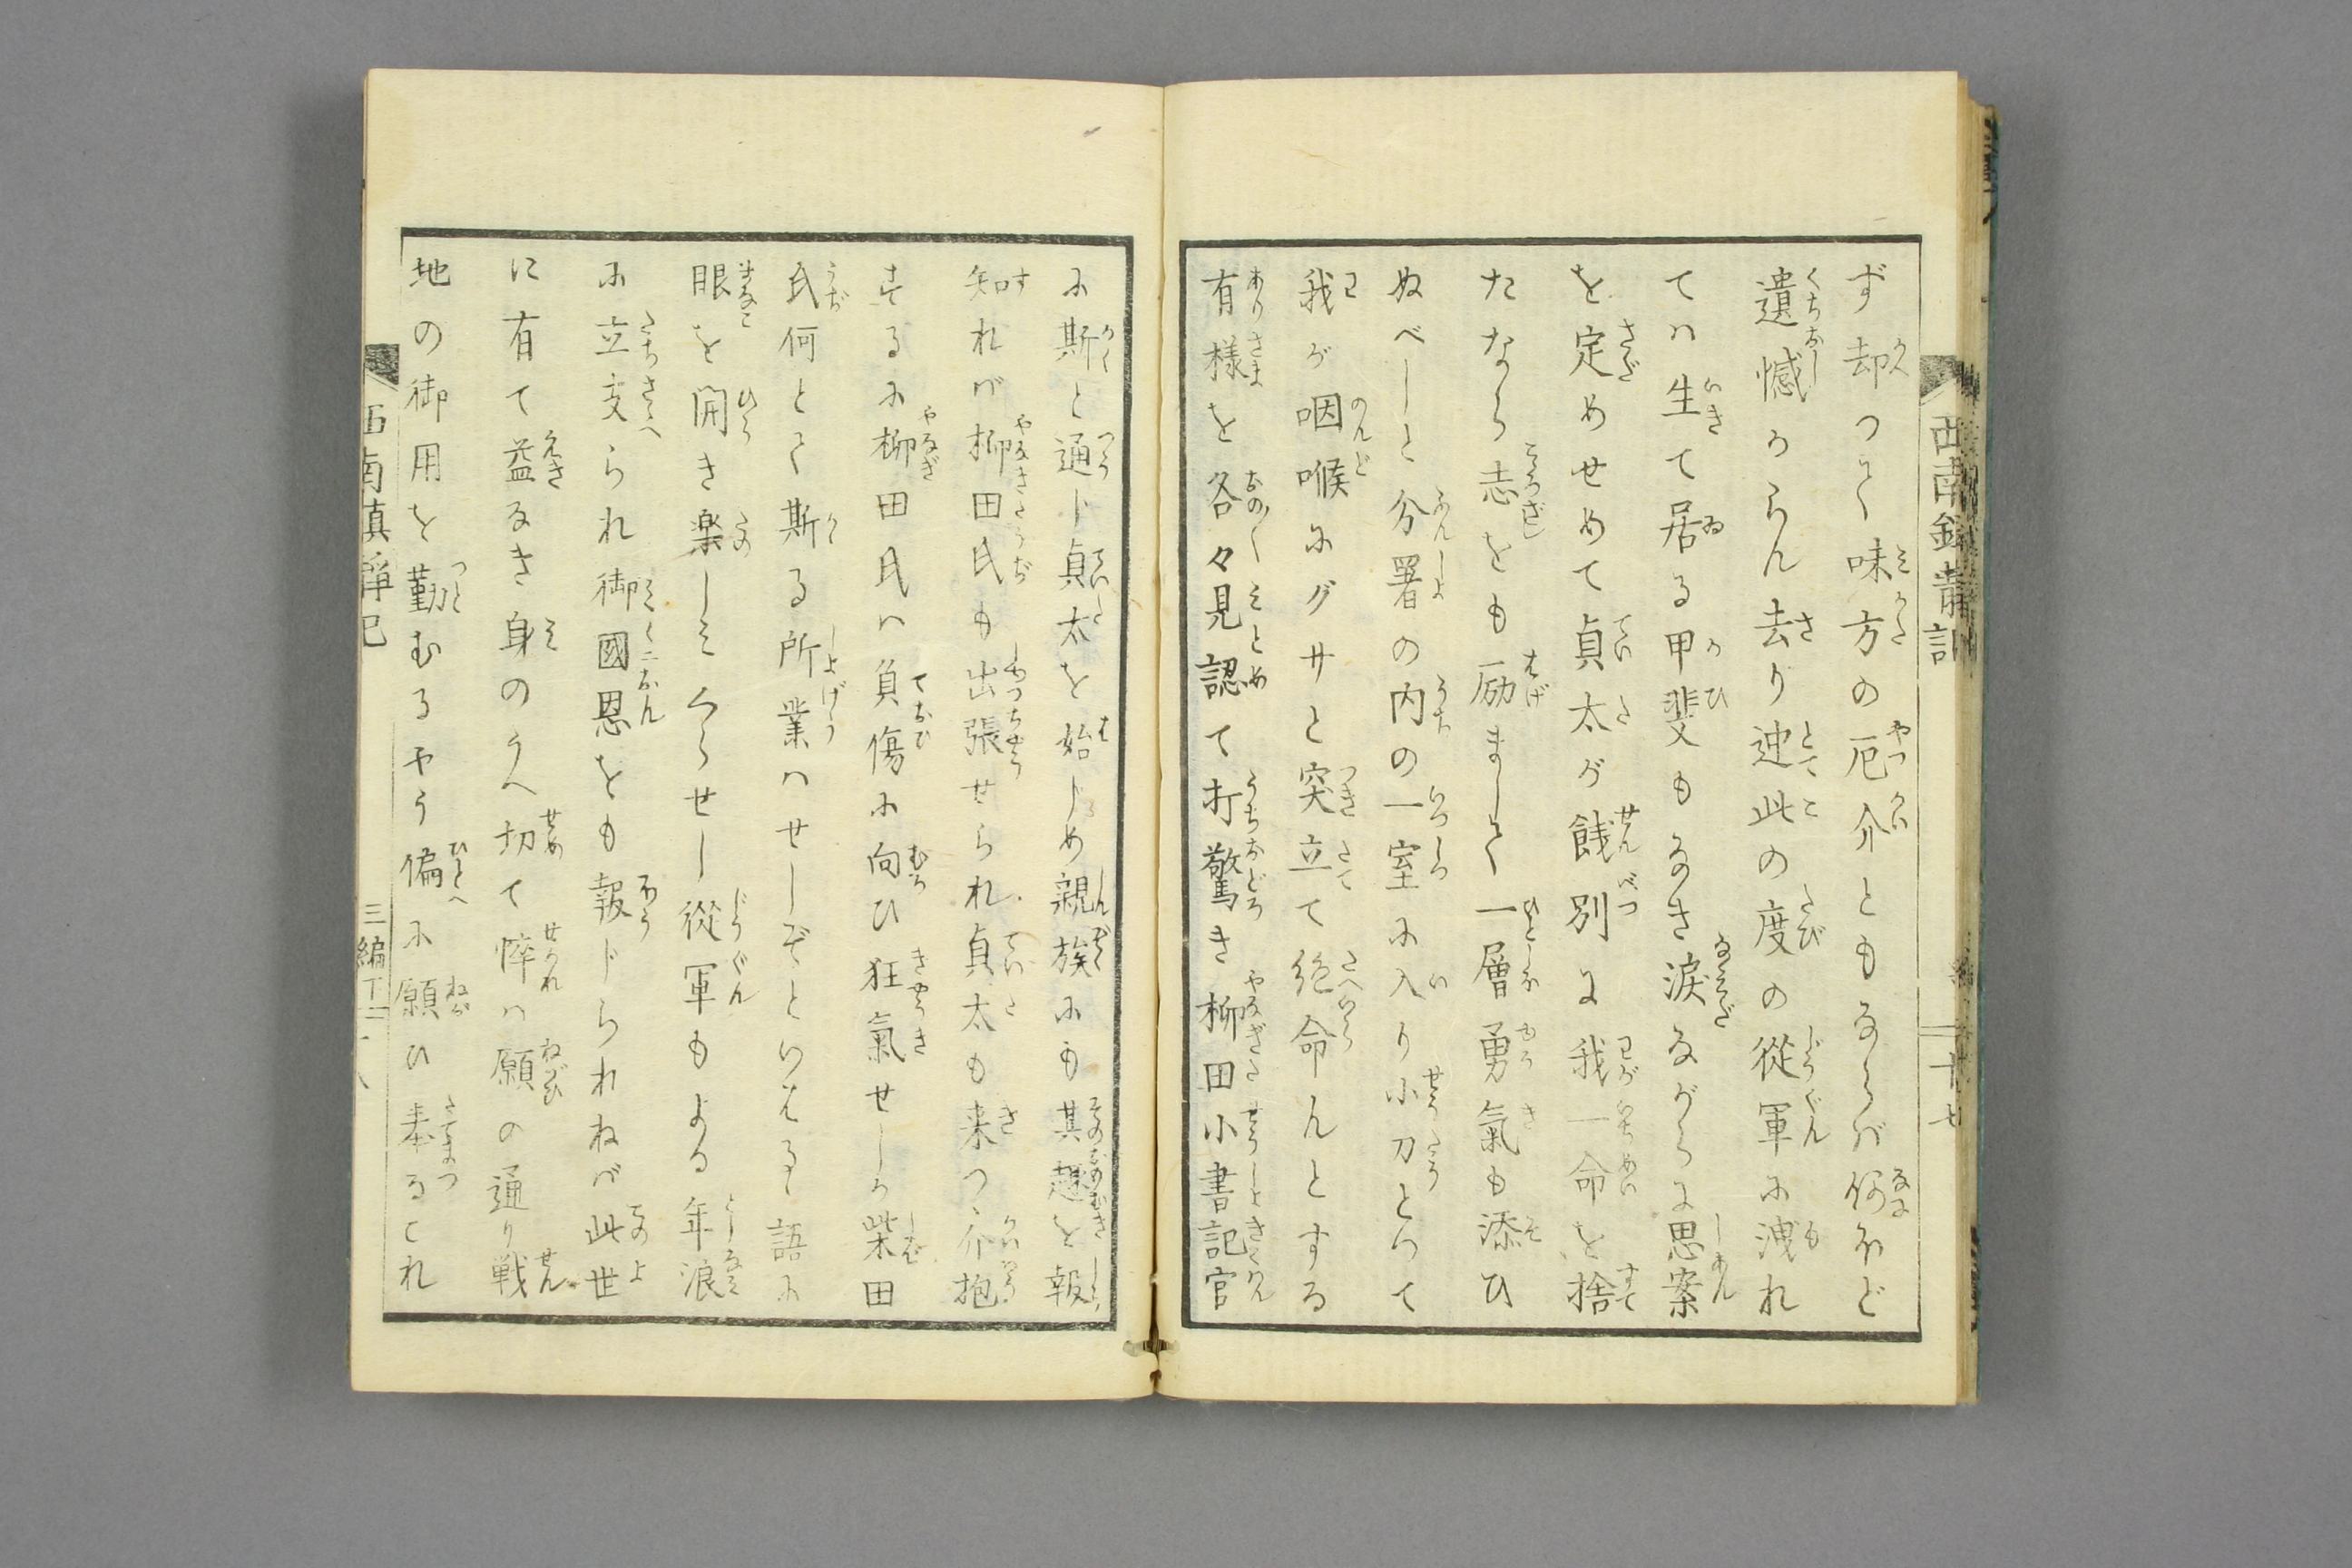 ず却つて味方の厄介ともならバ何ほど
遺憾からん去り迚此の度の從軍に洩れ
てハ生て居る甲斐もなき涙ながらに思案
を定めせめて貞太が餞別に我一命を捨
たなら志をも励まして一層勇氣も添ひ
ぬべしと分署の内の一室に入り小刀とつて
我が咽喉にグサと突立て絶命んとする
有様を各々見認て打驚き柳田小書記官
に斯と通じ貞太を始じめ親族にも其趣を報
知れバ柳田氏も出張せられ貞太も来つゝ介抱
するに柳田氏ハ負傷に向ひ狂氣せしか柴田
氏何とて斯る所業ハせしぞといはるゝ語に
眼を開き楽しみくらせし從軍もよる年浪
に立支られ御國恩をも報じられねバ此世
に有て益なき身のうへ切て悴ハ願の通り戦
地の御用を勤むるやう偏に願ひ奉るこれ
三編下